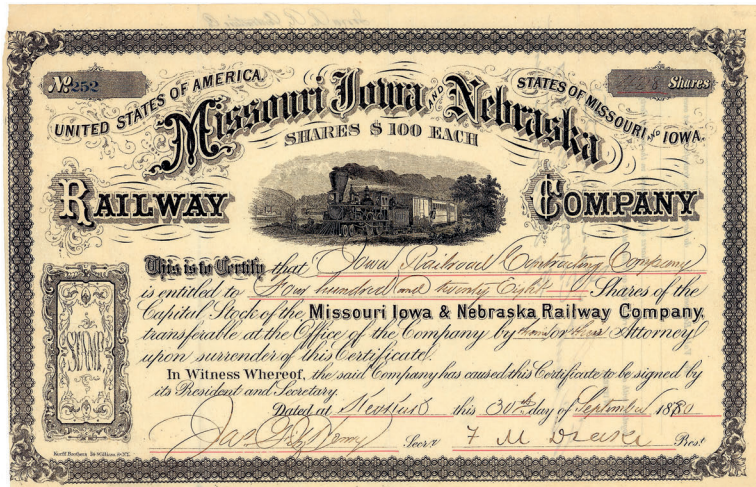 No. 252
428 Shares
UNITED STATES OF AMERICA.
STATES OF MISSOURI, AND IOWA.
Missouri Iowa AND Nebraska
SHARES $100 EACH
RAILWAY COMPANY
This is to Certify that Iowa Railroad Contracting Company
is entitled to Four hundred and twenty Eight Shares of the
Capital Stock of the Missouri Iowa & Nebraska Railway Company,
transferable at the Office of the Company by them or their Attorney
upon surrender of this Certificate.
In Witness Whereof, the said Company has caused this Certificate to be signed by
its President and Secretary.
Dated at this 30th day of September 1880
STAMP
Secr'y F M Drake Pres.t